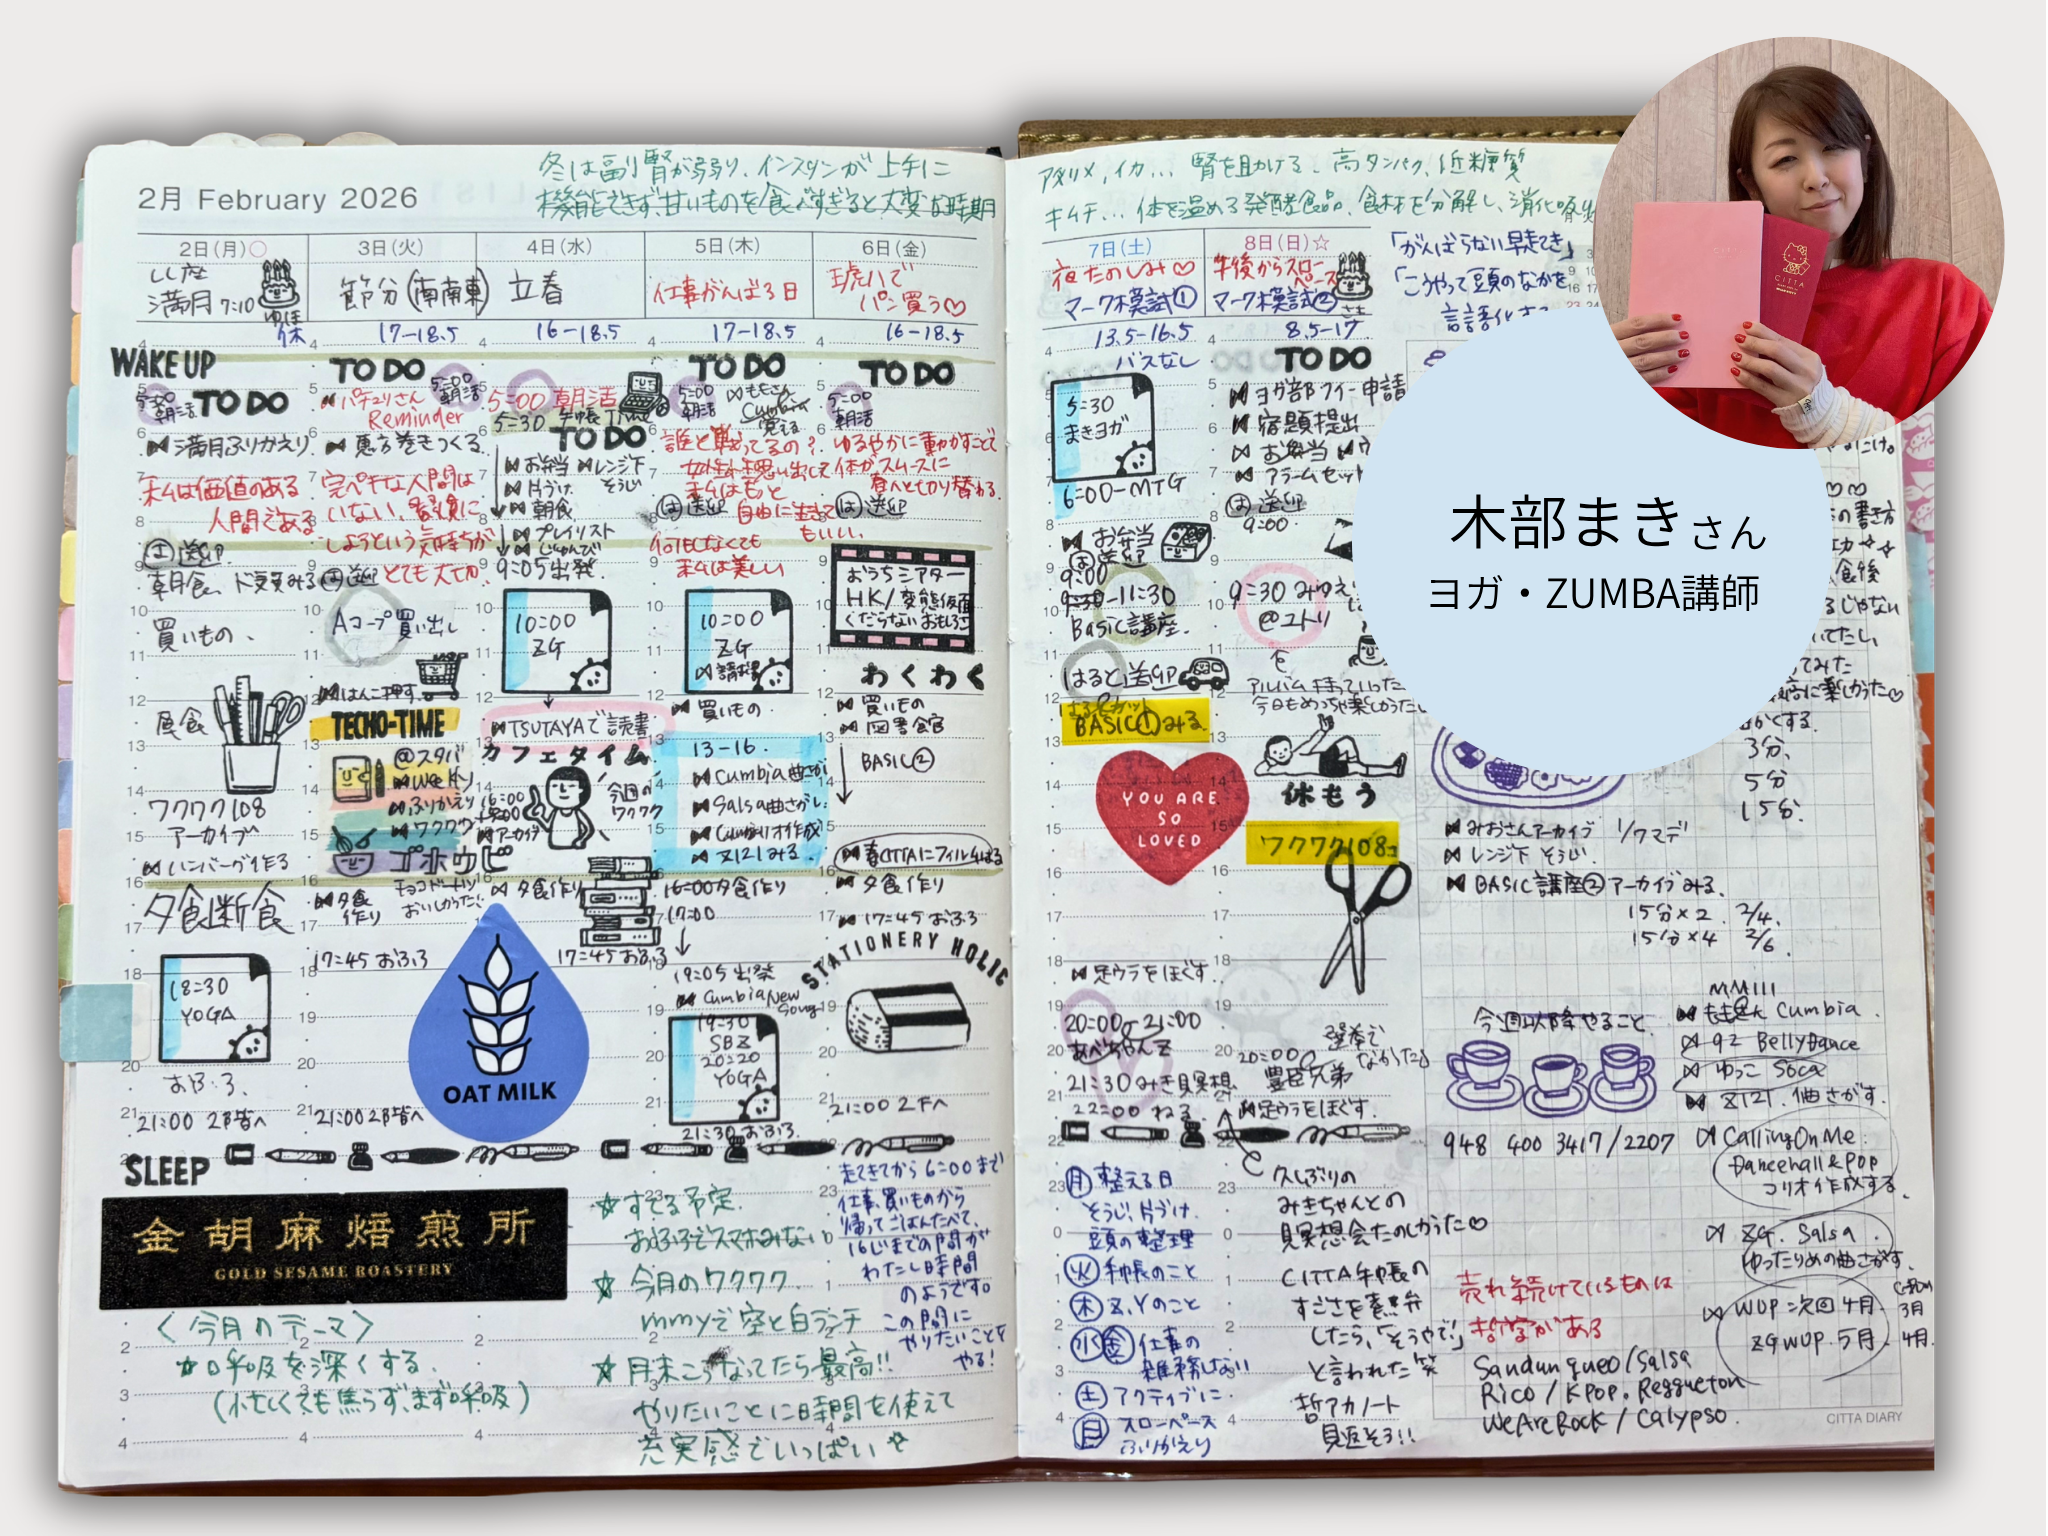 冬は副腎が弱り、インスリンが上手に
機能できず、甘いものを食べすぎると大変な時期
2月 February 2026
2日(月)○
LL座
満月 7:10
ゆほ
休
3日(火)
節分(南南東)
17-18.5
4日(水)
立春
16-18.5
5日(木)
仕事がんばる日
17-18.5
6日(金)
琥ハで
パン買う♡
16-18.5
WAKE UP
5:00
朝活
TO DO
満月ふりかえり
私は価値のある
人間である
送迎
朝食、ドラマみる
買いもの
昼食
ワクワク108
アーカイブ
ハンバーグ作る
夕食断食
18:30
YOGA
おふろ
21:00 2階へ
SLEEP
TO DO
5:00
朝活
パチュリさん
Reminder
恵方巻きつくる
完ペキな人間は
いない、
しようという気持ちが
とても大切
送迎
Aコープ買い出し
はんこ押す
TECHO-TIME
@スタバ
Weekly
ふりかえり
ワクワク
ゴホウビ
チョコドーナツ
おいしかった
夕食
作り
17:45 おふろ
21:00 2階へ
5:00 朝活
5:30 手帳 Time
TO DO
お弁当
レンジ下
そうじ
片づけ
朝食
プレイリスト
じゅんび
9:05出発
10:00
ZG
TSUTAYAで読書
カフェタイム
今週の
ワクワク
アーカイブ
夕食作り
17:45 おふろ
OAT MILK
TO DO
5:00
朝活
ももさん
Cumbia
覚える
誰と戦ってるの?
私はもっと
自由に生きて
もいい
送迎
何もしなくても
私は美しい
10:00
ZG
請求書
買いもの
13-16.
Cumbia曲さがし
Salsa曲さがし
Cumbiaコリオ作成
Z121みる
16:00夕食作り
17:00
19:05出発
Cumbia New
Song
19:30
SBZ
20:20
YOGA
21:30 おふろ
TO DO
5:00
朝活
ゆるやかに動かすことで
体がスムーズに
春へと切り替わる
送迎
おうちシアター
HK/変態仮面
くだらないおもしろさ
わくわく
買いもの
図書館
BASIC②
春CITTAにフィルムはる
夕食作り
17:45 おふろ
STATIONERY HOLIC
21:00 2Fへ
金胡麻焙煎所
GOLD SESAME ROASTERY
〈今月のテーマ〉
☆呼吸を深くする
(忙しくても焦らず、まず呼吸)
☆すてる予定
おふろでスマホみない
☆今月のワクワク
mmyで空と白ランチ
☆月末こうなってたら最高!!
やりたいことに時間を使えて
充実感でいっぱい
起きてから6:00まで
仕事、買いものから
帰ってごはんたべて、
16じまでの間が
わたし時間
のようです。
この間に
やりたいことを
やる!
アメリメ、イカ… 腎を助ける、高タンパク、低糖質
キムチ… 体を温める発酵食品、食材を分解し、消化吸
7日(土)
夜たのしみ♡
マーク模試①
13.5-16.5
バスなし
5:30
まきヨガ
6:00-MTG
お弁当
送迎
9:00
9:30-11:30
Basic講座
はると送迎
BASIC①みる
YOU ARE
SO
LOVED
足ウラをほぐす
20:00-21:00
あべちゃんZ
21:30みき瞑想
22:00 ねる
8日(日)☆
午後からスロー
ペース
マーク模試②
8.5-17
TO DO
ヨガ部フィー申請
宿題提出
お弁当
アラームセット
送迎
9:00
9:30 みゆえ
@ユトリ
を
アルバム持っていった
今日もめっちゃ楽しかった
休もう
ワクワク108
選挙で
なかった
20:00
豊臣兄弟
足ウラをほぐす
月 整える日
そうじ、片づけ
頭の整理
火 手帳のこと
木 Z,Yのこと
水金 仕事の
雑務しない
土 アクティブに
日 スローペース
ふりかえり
久しぶりの
みきちゃんとの
瞑想会たのしかった♡
CITTA手帳の
すごさを熱弁
したら、「そうやで!」
と言われた笑
哲アカノート
見返そう!!
「がんばらない早起き」
「こうやって頭のなかを
言語化
の書き方
食後
るじゃない
いてたし、
てみた
最高に楽しかった♡
3分、
5分
15分
みおさんアーカイブ
レンジ下 そうじ
BASIC講座②アーカイブみる
15分×2 2/4
15分×4 2/6
今週以降やること
948 400 3417/2207
MM111
ももさん Cumbia
92 BellyDance
ゆっこ Soca
Z121.曲さがす
Calling On Me
Dancehall & pop
コリオ作成する
ZG. Salsa
ゆったりめの曲さがす
WUP 次回 4月
ZGWUP. 5月
売れ続けているものは
哲学がある
Sandungueo/Salsa
Rico / Kpop. Reggueton
WeAreRock / Calypso
CITTA DIARY
CITTA
木部まきさん
ヨガ・ZUMBA講師